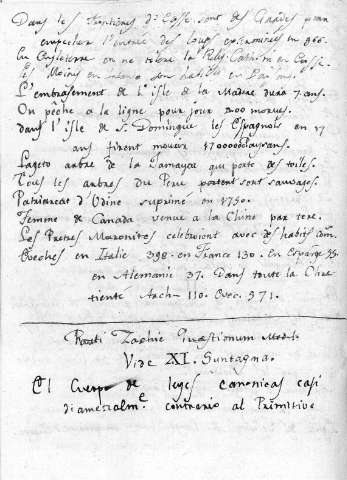 Dans les frontieres d'Ecosse sont des Gardes pour
empecher l'entrée des loups exterminées en 966.
En Angleterre on ne tolere la Relig. Cathol. ni en Ecosse.
les Moines en
L'embrasement de l'isle de la Madere dura 7. ans.
On pêche a la ligne pour jour 200 morues.
dans l'isle de S. Domingue les Espagnols en 17
ans firent mourir
Lageto arbre de la Jamayca qui porte des toiles.
Tous les arbres du Peru portent sont sauvages.
Patriarcat d'Udine suprimé en 1750.
Femme de Canada venue a la Chine par tere.
Les Pretres Maronites celebroient avec des habits com.
Evechés en Italie 398. en France 130. en Espagne 55.
en Alemanie 37. Dans toute la Chre
tienté Arch. 110. Evec. 571.
Zaphie Quæstionum Medic.
Vide XI. Suntagma.
El Cuerpo de leyes canonicas casi
diametralm.e contrario al Primitivo